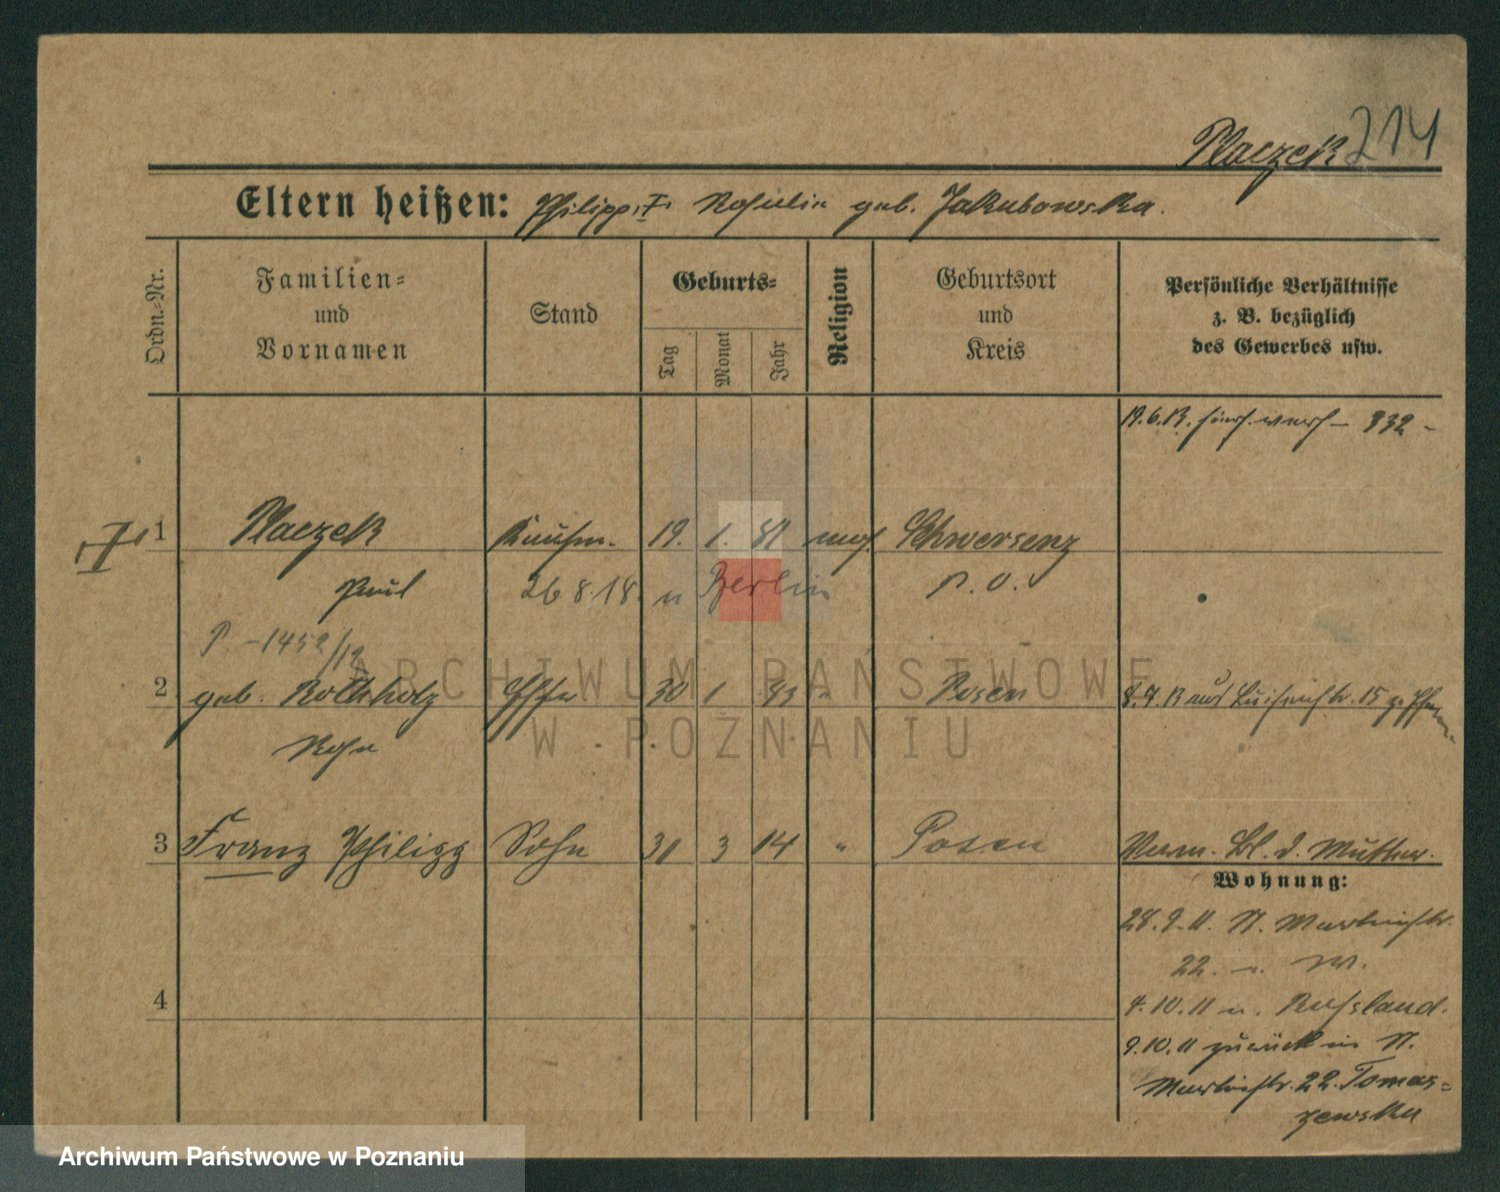 Placzek 214
Eltern heißen: Philipp I. Rosalie geb. Jakubowska.
Ordn.-Nr.
Familien-
und
Vornamen
Stand
Geburts-
Tag
Monat
Jahr
Religion
Geburtsort
und
Kreis
Persönliche Verhältnisse
z. B. bezüglich
des Gewerbes usw.
19.6.13. 832 -
1 Placzek Kaufm. 19. 1. 81 mos Schwersenz
Paul 26.8.18. n Berlin P. O.
P. - 1452/12
2 geb. Rothholz Ehefr. 30 1 " Posen 15
Rosa
3 Franz Philipp Sohn 31 3 14 " Posen Verm. Bl. d. Mutter.
Wohnung:
28.9.11. St. Martinstr.
22. W.
4
4.10.11 n. Russland.
9.10.11 zurück in St.
Martinstr. 22. Tomas=
zewska
ARCHIWUM PAŃSTWOWE
W POZNANIU
Archiwum Państwowe w Poznaniu